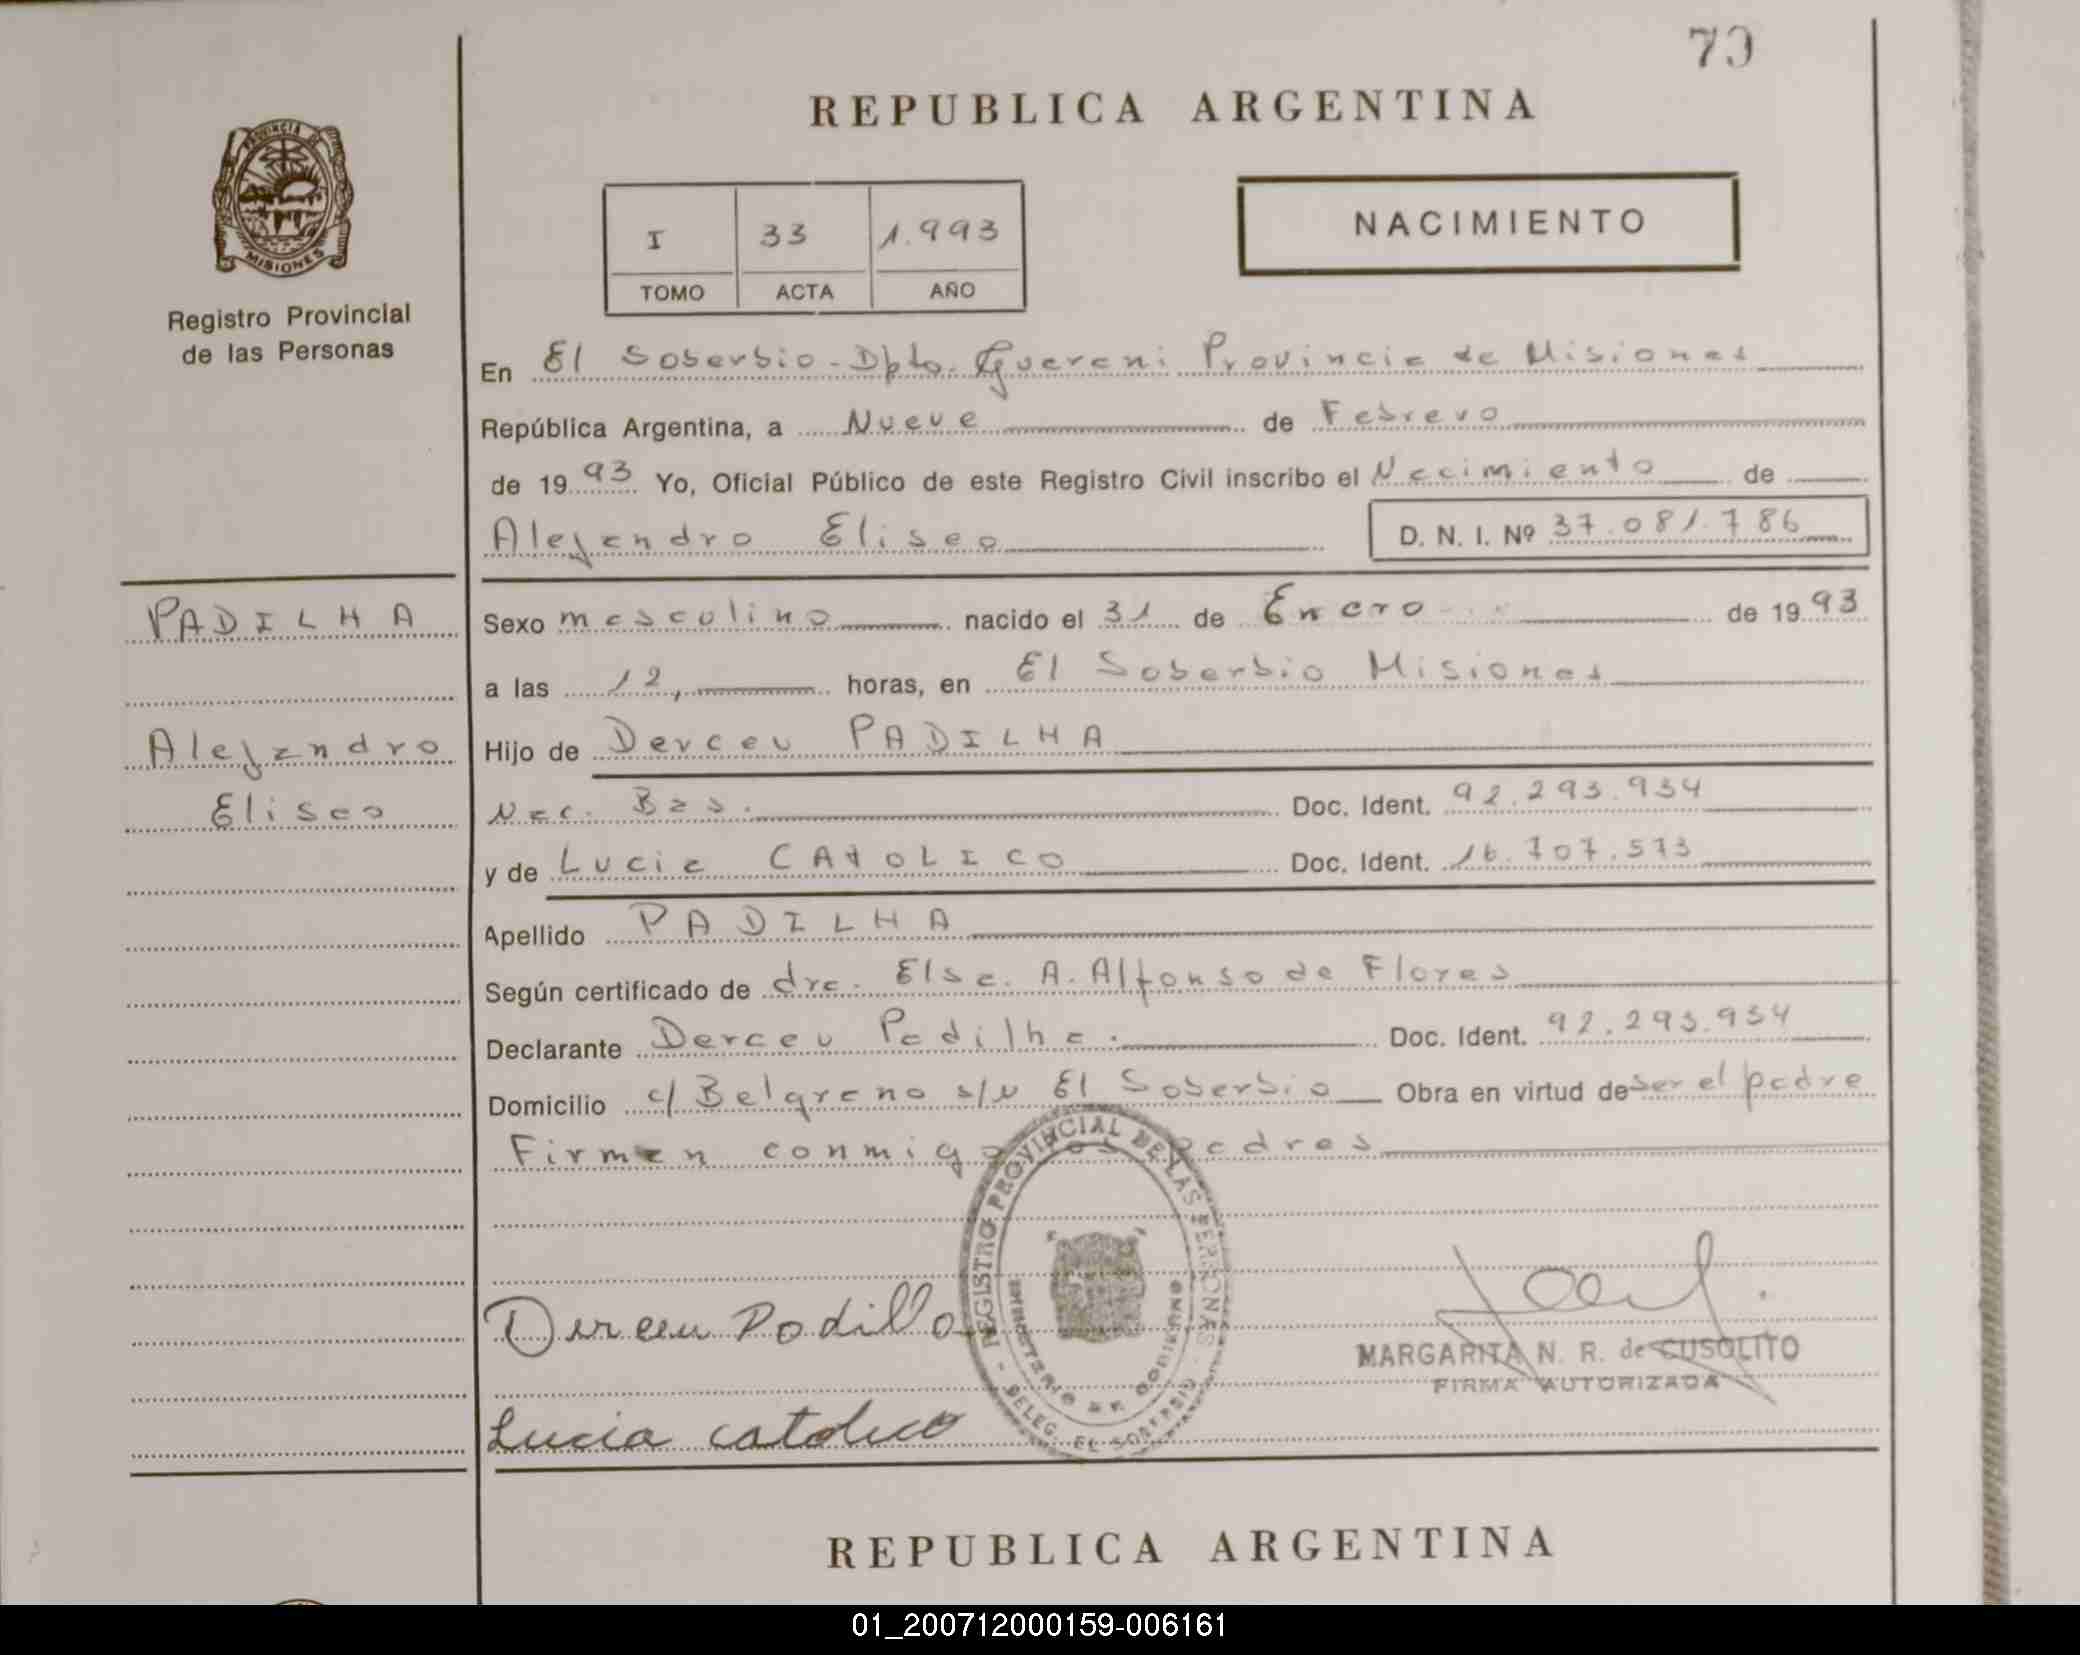 70
REPUBLICA ARGENTINA
PROVINCIA DE
MISIONES
Registro Provincial
de las Personas
I 33 1.993
TOMO ACTA AÑO
NACIMIENTO
En El Soberbio - Dpto. Guarani Provincia de Misiones
República Argentina, a Nueve de Febrero
de 1993 Yo, Oficial Público de este Registro Civil inscribo el Nacimiento de
Alejandro Eliseo D. N. I. Nº 37.081.786
PADILHA
Alejandro
Eliseo
Sexo masculino nacido el 31 de Enero de 1993
a las 12, horas, en El Soberbio Misiones
Hijo de Derceu PADILHA
Nac. Bras. Doc. Ident. 92.293.934
y de Lucia CATOLICO Doc. Ident. 16.707.573
Apellido PADILHA
Según certificado de dra. Elsa. A. Alfonso de Flores
Declarante Derceu Padilha. Doc. Ident. 92.293.934
Domicilio c/ Belgrano s/n El Soberbio Obra en virtud de ser el padre
Firman conmigo los padres
REGISTRO PROVINCIAL DE LAS PERSONAS - DELEG. EL SOBERBIO -
MINISTERIO DE GOBIERNO
Derceu Padilla
Lucia catolico
MARGARITA N. R. de CUSOLITO
FIRMA AUTORIZADA
REPUBLICA ARGENTINA
01_200712000159-006161